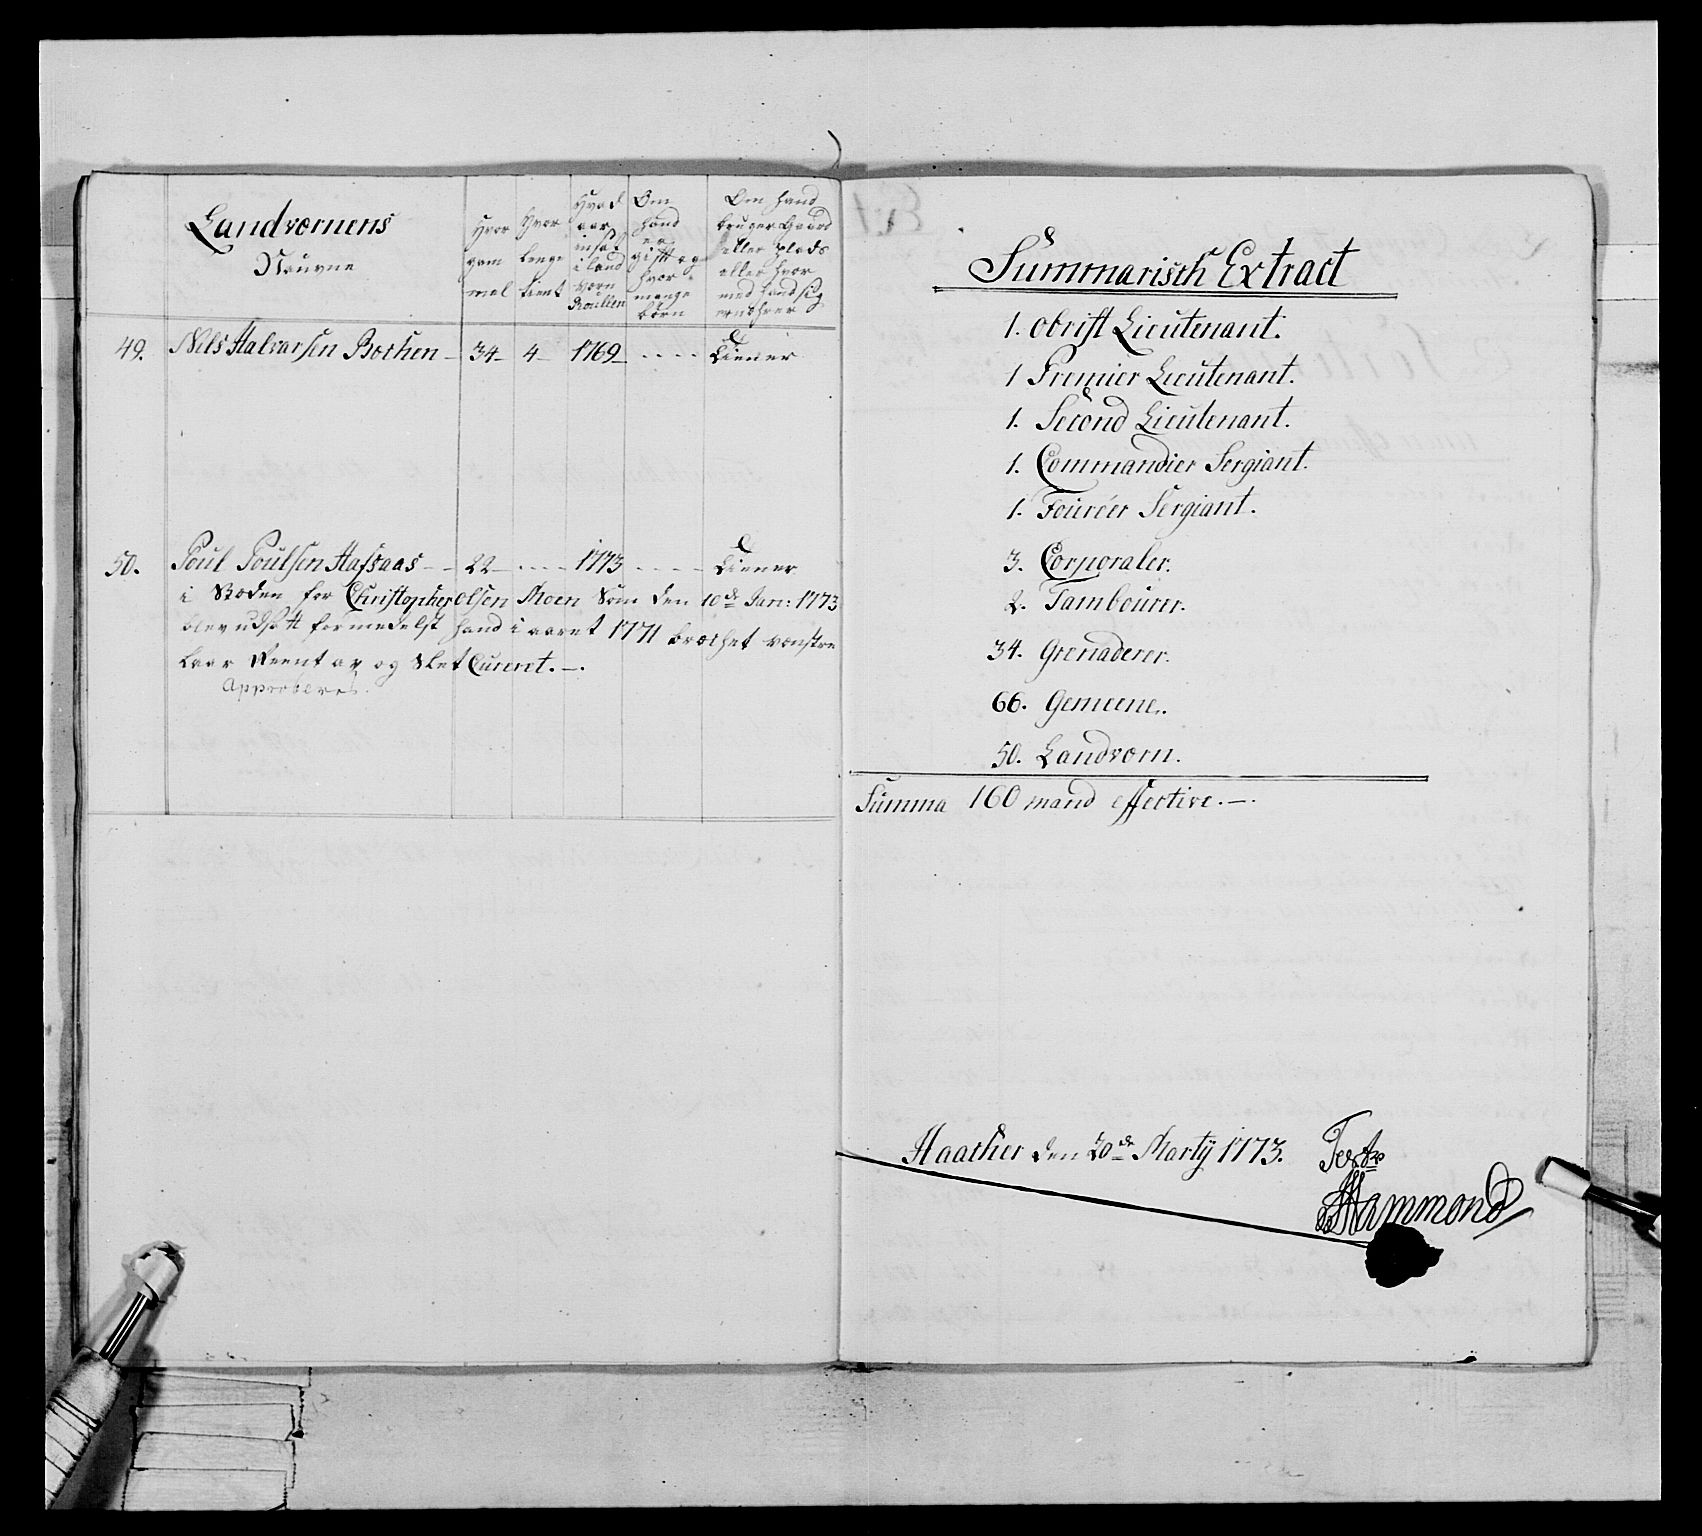 Landværnens
Nauvne
Hvor
gam
mel
Hvor
lenge
tient
Hvad
aar
insat
i land
værn
Roullen
Om
hand
er
gift og
hvor
mange
börn
Om hand
bruger Gaard
eller Plads
eller hvor
med hand sig
ernæhrer
49. Nils Halvarsen Bæchen 34 4 1769 .... tiener
50. Poul Poulsen Hafsaas 22 .... 1773 .... tiener
i Stæden for Christopher Olsen Moen Som den 10de Jan: 1773
blev udsat formedelst hand i aaret 1771 bræchet venstre
Laar Beent av og Slet Cureret.
Approberes.
Summarisch Extract
1. Obrist Lieutenant.
1 Premier Lieutenant.
1. Second Lieutenant.
1. Commandier Sergiant.
1. Fourier Sergiant.
3. Corporaler.
2. Tambourer.
34. Grenaderer.
66. Gemeene.
50. Landværn.
Summa 160 mand effective.
Haacher den 20de Martij 1773.
Hammond